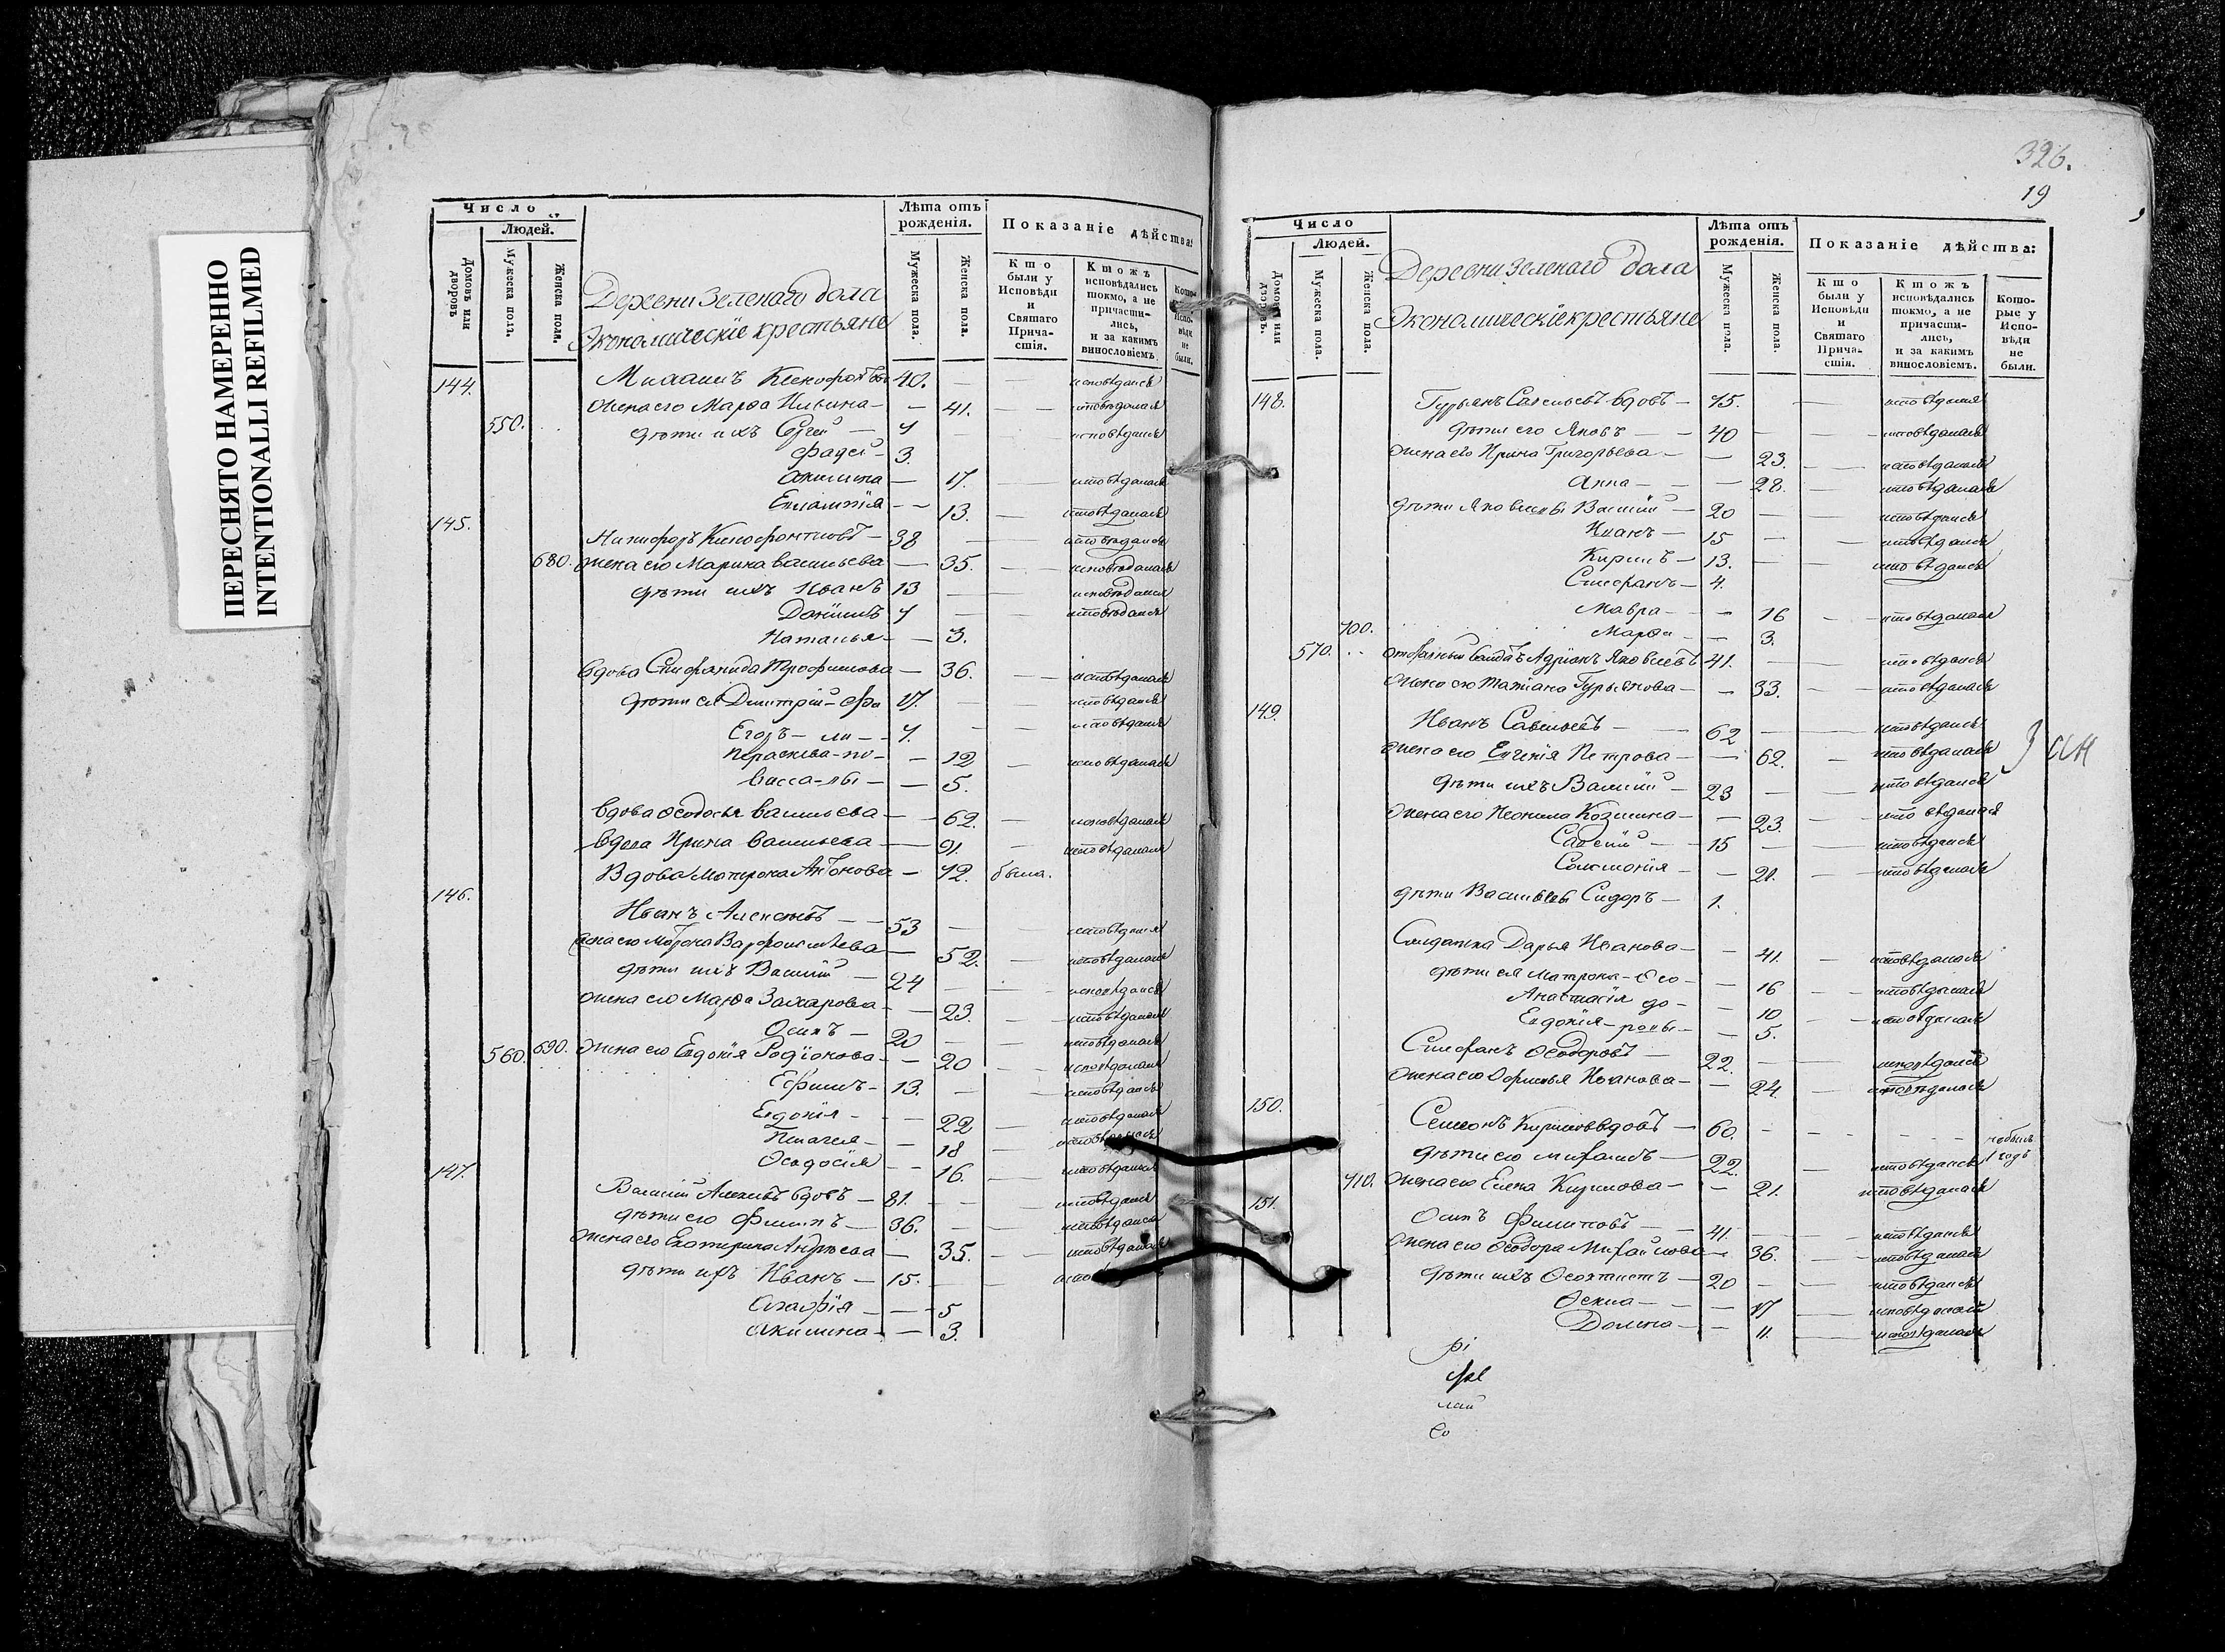 ПЕРЕСНЯТО НАМЕРЕННО
INTENTIONALLI REFILMED
Число
Людей.
Домовъ или дворовъ
Мужеска пола.
Женска пола.
Деревни Зеленаго дола
Экономическіе крестьяне
Лѣта отъ рожденія.
Мужеска пола.
Женска пола.
Показаніе дѣйства:
Кто были у Исповѣди и Святаго Причастія.
Ктожъ исповѣдались токмо, а не причастились, и за какимъ винословіемъ.
Которые у Исповѣди не были.
144. 40. исповѣдался
жена его Марѳа — 41. исповѣдалась
550. дѣти ихъ Сергей — исповѣдался
Фадей — 3.
Акилина — 17. исповѣдалась
13. исповѣдалась
145. Никифоръ — 38 исповѣдался
680. жена его Марина Васильева — 35. исповѣдалась
дѣти ихъ Иванъ 13 исповѣдался
Даніилъ исповѣдался
Наталья — 3.
вдова Трофимова — 36. исповѣдалась
дѣти ея Димитрій — 17. исповѣдался
Егоръ — исповѣдался
Параскева — 12 исповѣдалась
Васса — 5.
Вдова Ѳеодосья Васильева — 62. исповѣдалась
Вдова Ирина Васильева — 91 исповѣдалась
Вдова Матрона Антонова — 72. была.
146. Иванъ Алексѣевъ — 53 исповѣдался
жена его — 52. исповѣдалась
дѣти ихъ Василій — 24 исповѣдался
жена его Марѳа Захарова — 23. исповѣдалась
Осипъ — 20 исповѣдался
560. 690. жена его Евдокія Родіонова — 20 исповѣдалась
Ефимъ — 13. исповѣдался
Евдокія — 22 исповѣдалась
Пелагея — 18
Ѳеодосія — 16. исповѣдалась
147. Василій Алексѣевъ вдовъ — 81. исповѣдался
дѣти его Филипъ — 36. исповѣдался
жена его Екатерина Андреева — 35. исповѣдалась
дѣти ихъ Иванъ — 15.
5
Акилина — 3.
326.
19
Число
Людей.
Домовъ или дворовъ.
Мужеска пола.
Женска пола.
Деревни Зеленаго дола
Экономическіе крестьяне
Лѣта отъ рожденія.
Мужеска пола.
Женска пола.
Показаніе дѣйства:
Кто были у Исповѣди и Святаго Причастія.
Ктожъ исповѣдались токмо, а не причастились, и за какимъ винословіемъ.
Которые у Исповѣди не были.
148. Гурьянъ Савельевъ вдовъ — 75. исповѣдался
дѣти его Яковъ — 40 исповѣдался
жена его Ирина Григорьева — 23. исповѣдалась
Анна — 28. исповѣдалась
дѣти Яковлевы Василій — 20 исповѣдался
Иванъ — 15 исповѣдался
Кирилъ — 13. исповѣдался
Стефанъ — 4.
Мавра — 16 исповѣдалась
700. Марѳа — 3.
570. Адріанъ Яковлевъ 41. исповѣдался
жена его Татіана Гурьянова — 33. исповѣдалась
149. Иванъ Савельевъ — 62 исповѣдался
жена его Евгенія Петрова — 62. исповѣдалась
дѣти ихъ Василій — 23 исповѣдался
жена его Козмина — 23. исповѣдалась
Савелій — 15 исповѣдался
Соломонія — 21. исповѣдалась
дѣти Васильевы Сидоръ — 1.
Солдатка Дарья Иванова — 41. исповѣдалась
дѣти ея Матрона — Ѳео — 16 исповѣдалась
Анастасія до — 10 исповѣдалась
Евдокія — ровы — 5.
Стефанъ Ѳеодоровъ — 22. исповѣдался
жена его Иванова — 24. исповѣдалась
150. Семіонъ вдовъ — 60. небылъ 1 годъ
дѣти его Михаилъ — 22. исповѣдался
710. жена его Елена Кирилова — 21. исповѣдалась
151. Осипъ Филиповъ — 41. исповѣдался
жена его Ѳеодора Михайлова — 36. исповѣдалась
дѣти ихъ Ѳеоктистъ — 20 исповѣдался
17 исповѣдалась
Домна — 11. исповѣдалась